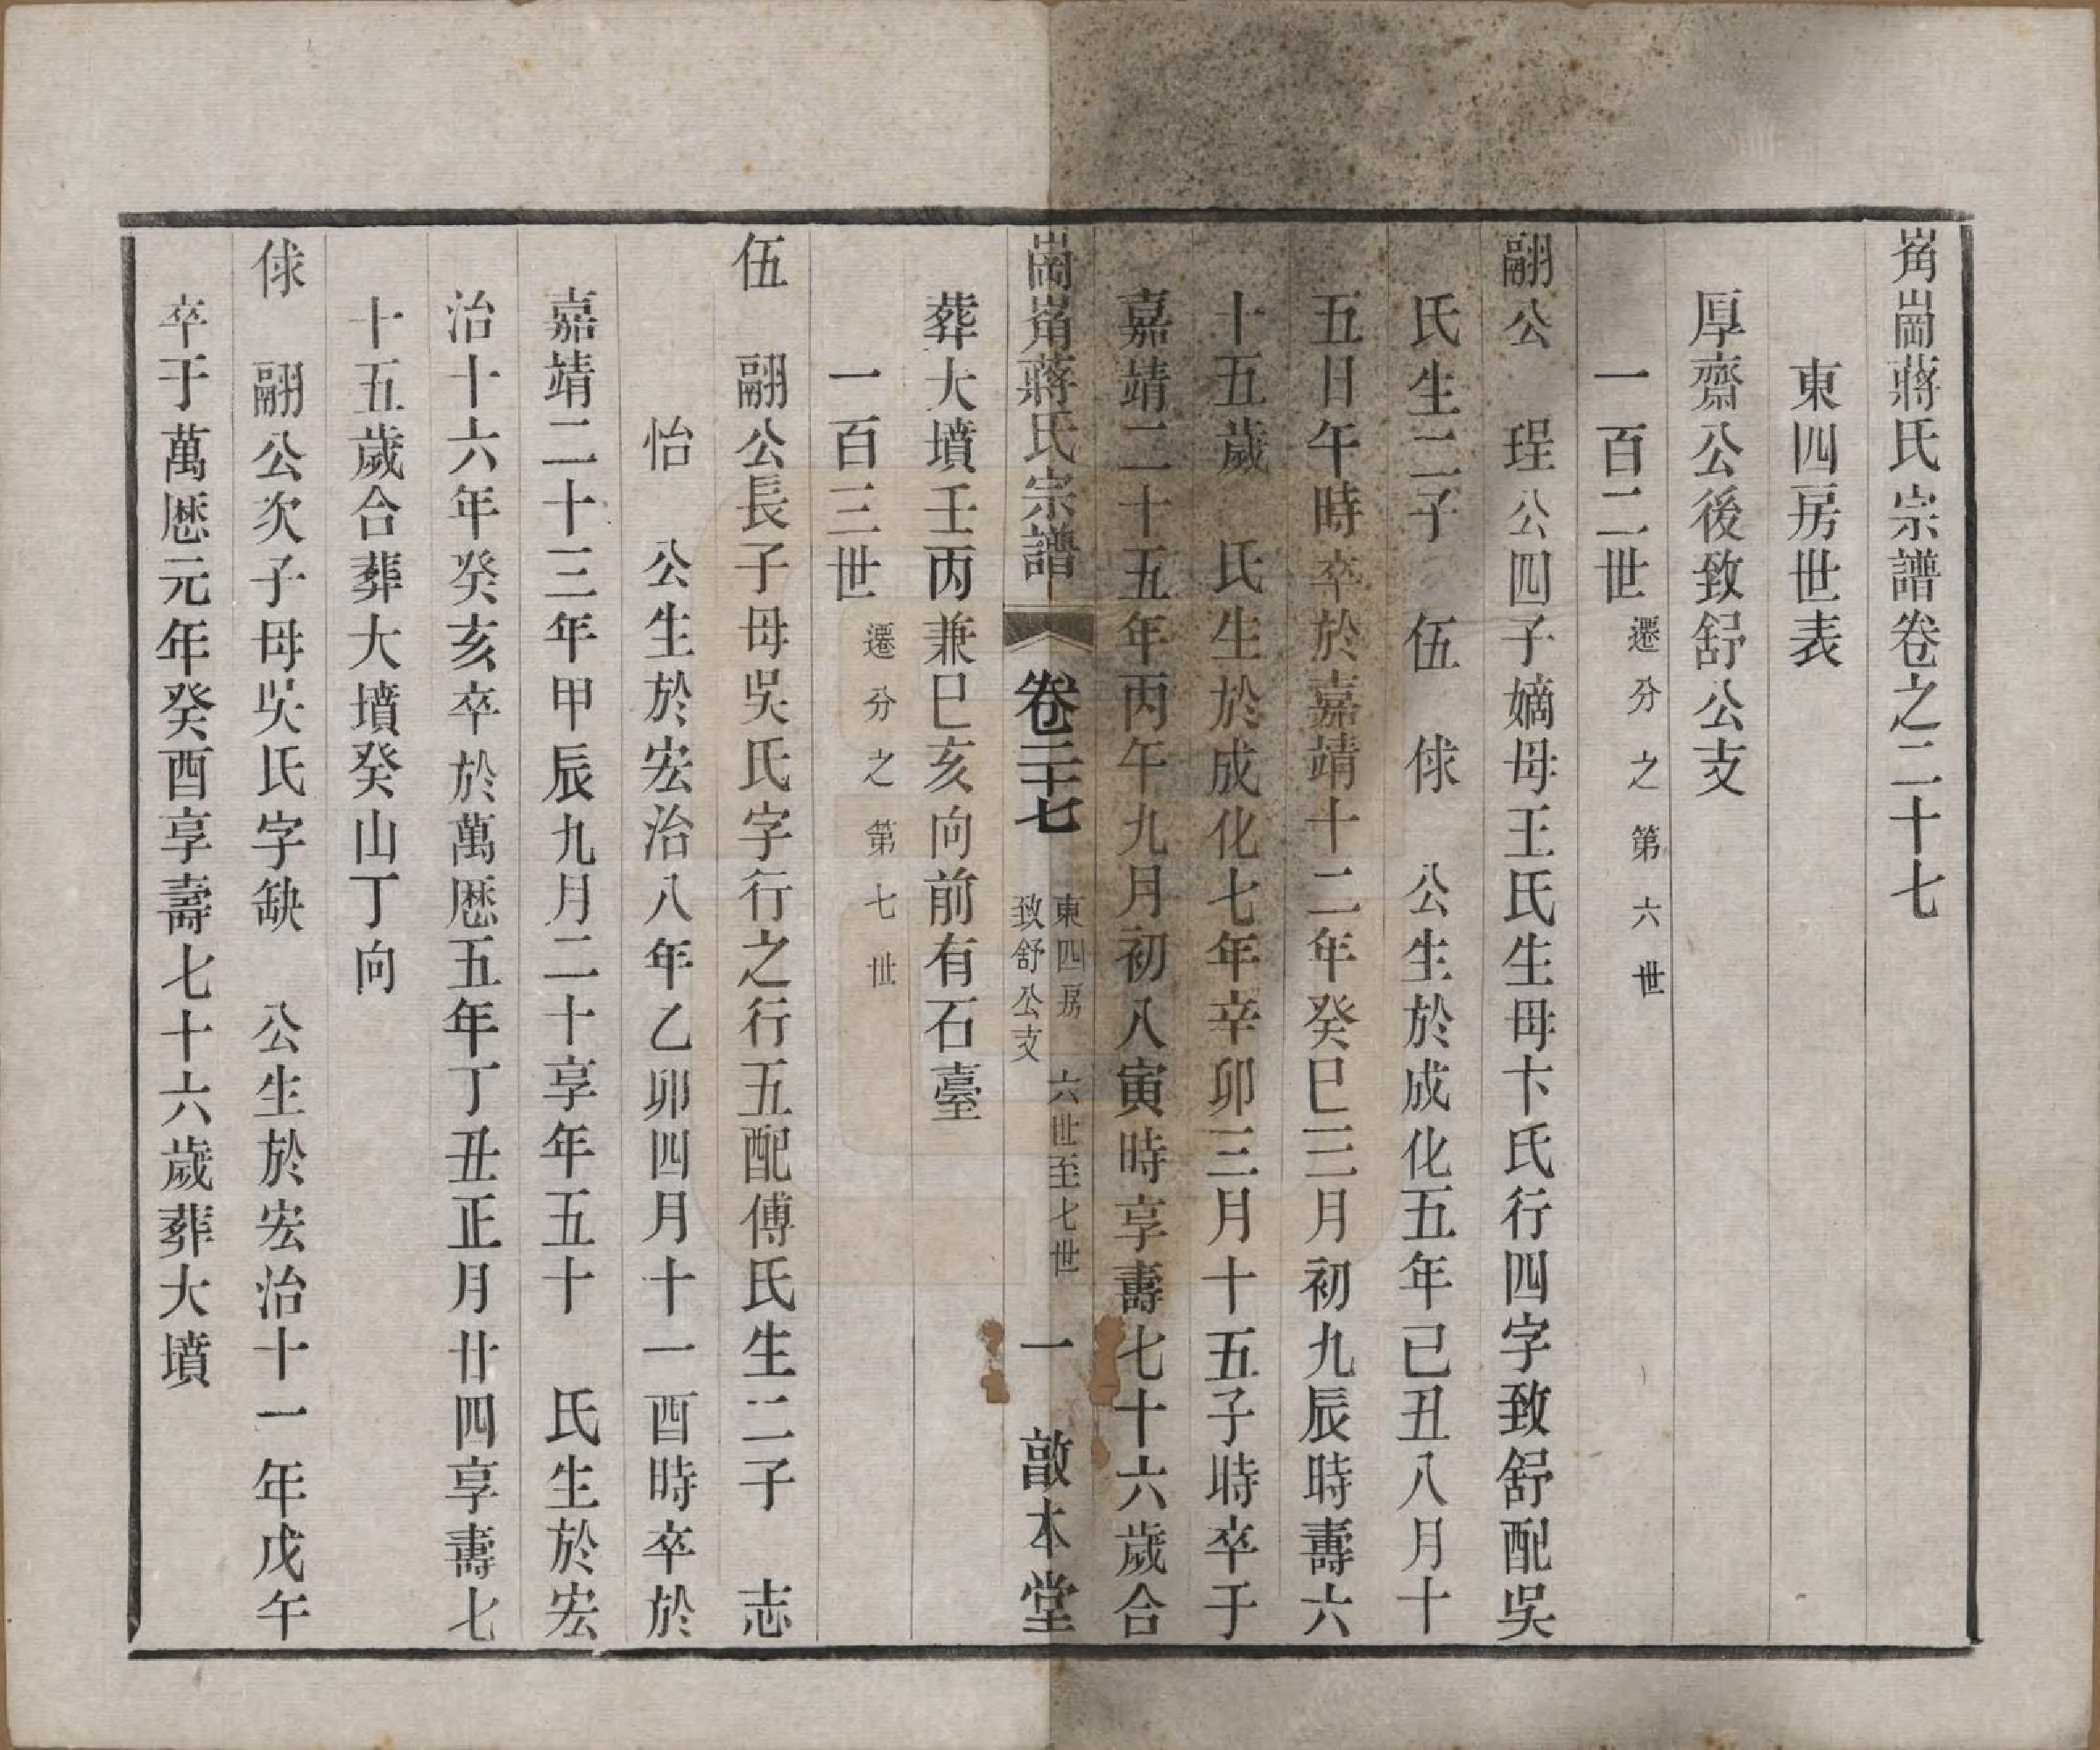 崗蔣氏宗譜卷之二十七
東四房世表
厚齋公後致舒公支
一百二世 遷分之第六世
翮公 珵公四子嫡母王氏生母卞氏行四字致舒配吳
氏生二子 伍 俅 公生於成化五年己丑八月十
五日午時卒於嘉靖十二年癸巳三月初九辰時壽六
十五歲 氏生於成化七年辛卯三月十五子時卒于
嘉靖二十五年丙午九月初八寅時享壽七十六歲合
崗蔣氏宗譜 卷二十七 東四房 致舒公支 六世至七世 一 敬本堂
葬大墳壬丙兼巳亥向前有石臺
一百三世 遷分之第七世
伍 翮公長子母吳氏字行之行五配傅氏生二子 志
怡 公生於宏治八年乙卯四月十一酉時卒於
嘉靖二十三年甲辰九月二十享年五十 氏生於宏
治十六年癸亥卒於萬厯五年丁丑正月廿四享壽七
十五歲合葬大墳癸山丁向
俅 翮公次子母吳氏字缺 公生於宏治十一年戊午
卒于萬厯元年癸酉享壽七十六歲葬大墳